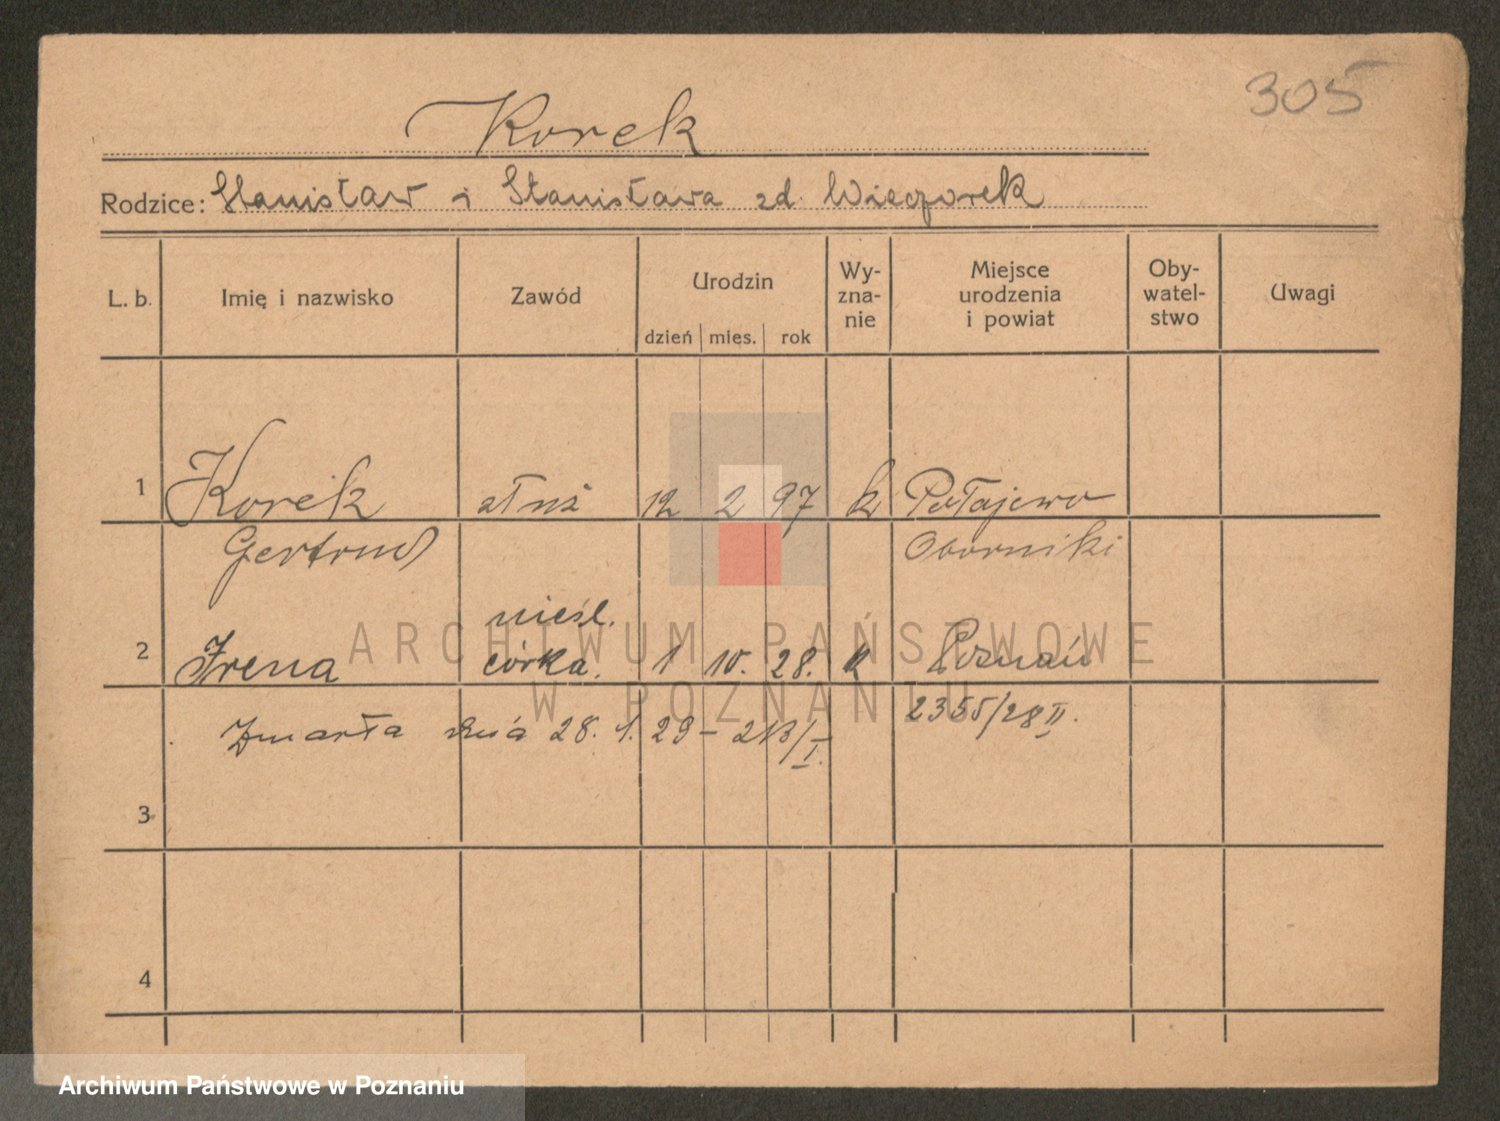 305
Korek
Rodzice: Stanisław i Stanisława zd. Wieczorek
L. b. Imię i nazwisko Zawód Urodzin dzień mies. rok Wy-zna-nie Miejsce urodzenia i powiat Oby-watel-stwo Uwagi
1 Korek służ 12 2 97 k Połajewo
Gertrud Oborniki
nieśl.
2 Irena córka. 1 10. 28. k Poznań
2355/28 II.
Zmarła dnia 28. 1. 29 – 213/I.
3
4
ARCHIWUM PAŃSTWOWE
W POZNANIU
Archiwum Państwowe w Poznaniu